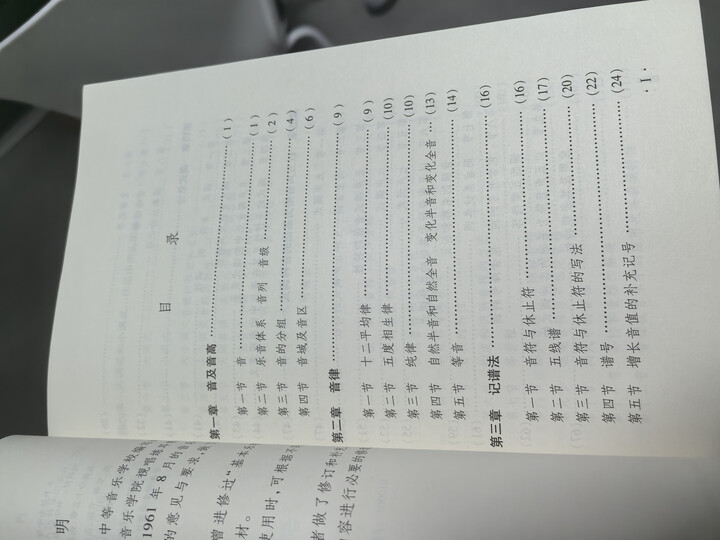 目 录
第一章 音及音高……………………………………(1)
第一节 音……………………………………(1)
第二节 乐音体系 音列 音级……………………(2)
第三节 音的分组……………………………………(4)
第四节 音域及音区……………………………………(6)
第二章 音律……………………………………(9)
第一节 十二平均律……………………………………(9)
第二节 五度相生律……………………………………(10)
第三节 纯律……………………………………(10)
第四节 自然半音和自然全音 变化半音和变化全音…(13)
第五节 等音……………………………………(14)
第三章 记谱法……………………………………(16)
第一节 音符与休止符……………………………………(16)
第二节 五线谱……………………………………(17)
第三节 音符与休止符的写法……………………………(20)
第四节 谱号……………………………………(22)
第五节 增长音值的补充记号……………………………(24)
· 1 ·
明
中等音乐学校
音乐学院视唱练
1961年8月的
的意见与要求,
曾进修过“基本乐
材。
使用时,可根据
者做了修订和
容进行必要的